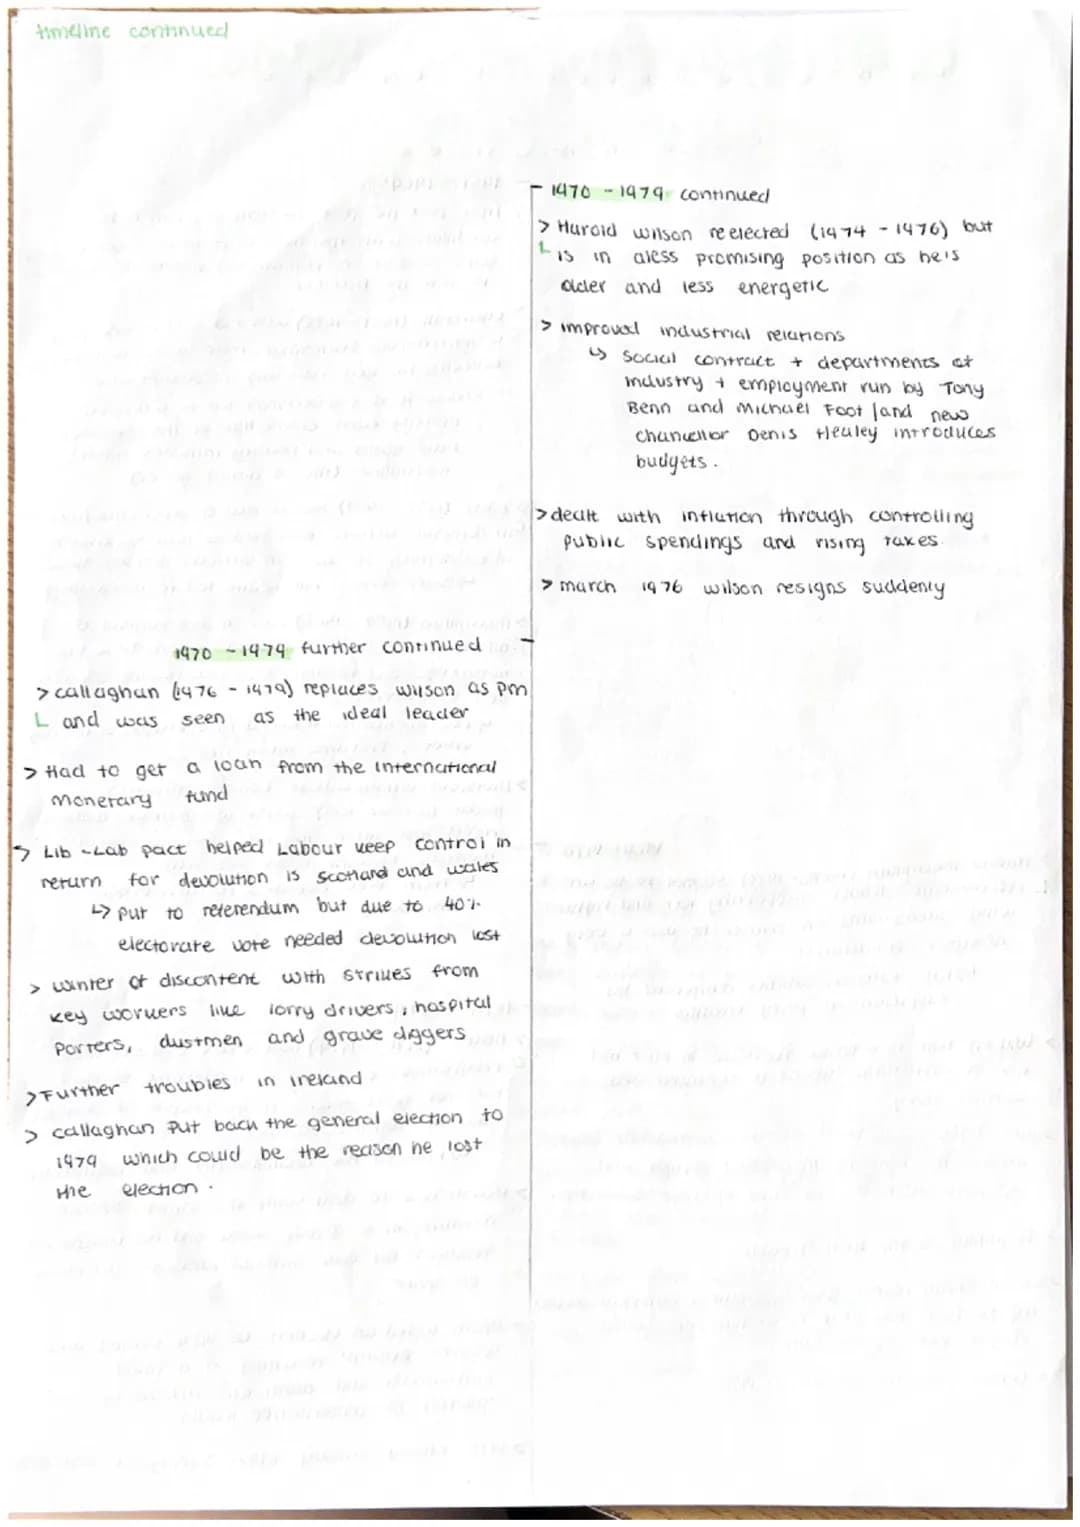 timeline continued
1970 - 1979 continued
> Harold wilson reelected (1974 - 1976) but
L is in a less promising position as he is
older and less energetic
> improved industrial relations
↳ Social contract + departments of
industry + employment run by Tony
Benn and Michael Foot /and new
chancellor Denis Healey introduces
budgets.
> dealt with inflation through controlling
public spendings and rising taxes.
> march 1976 wilson resigns suddenly
1970 - 1979 further continued
> callaghan (1976 - 1979) replaces wilson as pm
L and was seen as the ideal leader
> Had to get a loan from the international
monetary fund
> Lib-Lab pact helped Labour keep control in
return for devolution is scotland and wales
↳ put to referendum but due to 40%
electorate vote needed devolution lost
> winter of discontent with strikes from
key workers like lorry drivers, hospital
porters, dustmen and grave diggers
> Further troubles in ireland
> callaghan put back the general election to
1979 which could be the reason he lost
the election.